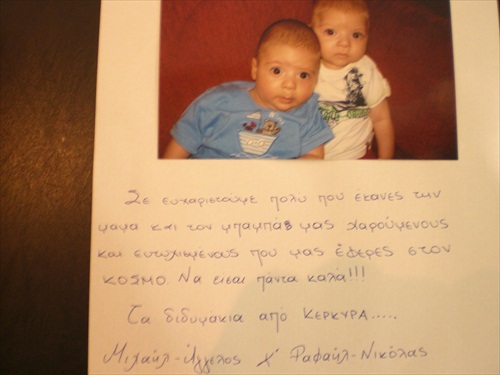 Σε ευχαριστουμε πολυ που έκανες την
μαμα και τον μπαμπά μας χαρούμενους
και ευτυχισμένους που μας έφερες στον
ΚΟΣΜΟ. Να εισαι πάντα καλά!!!
Τα διδυμάκια από ΚΕΡΚΥΡΑ.....
Μιχαήλ-Άγγελος χ' Ραφαήλ-Νικόλας